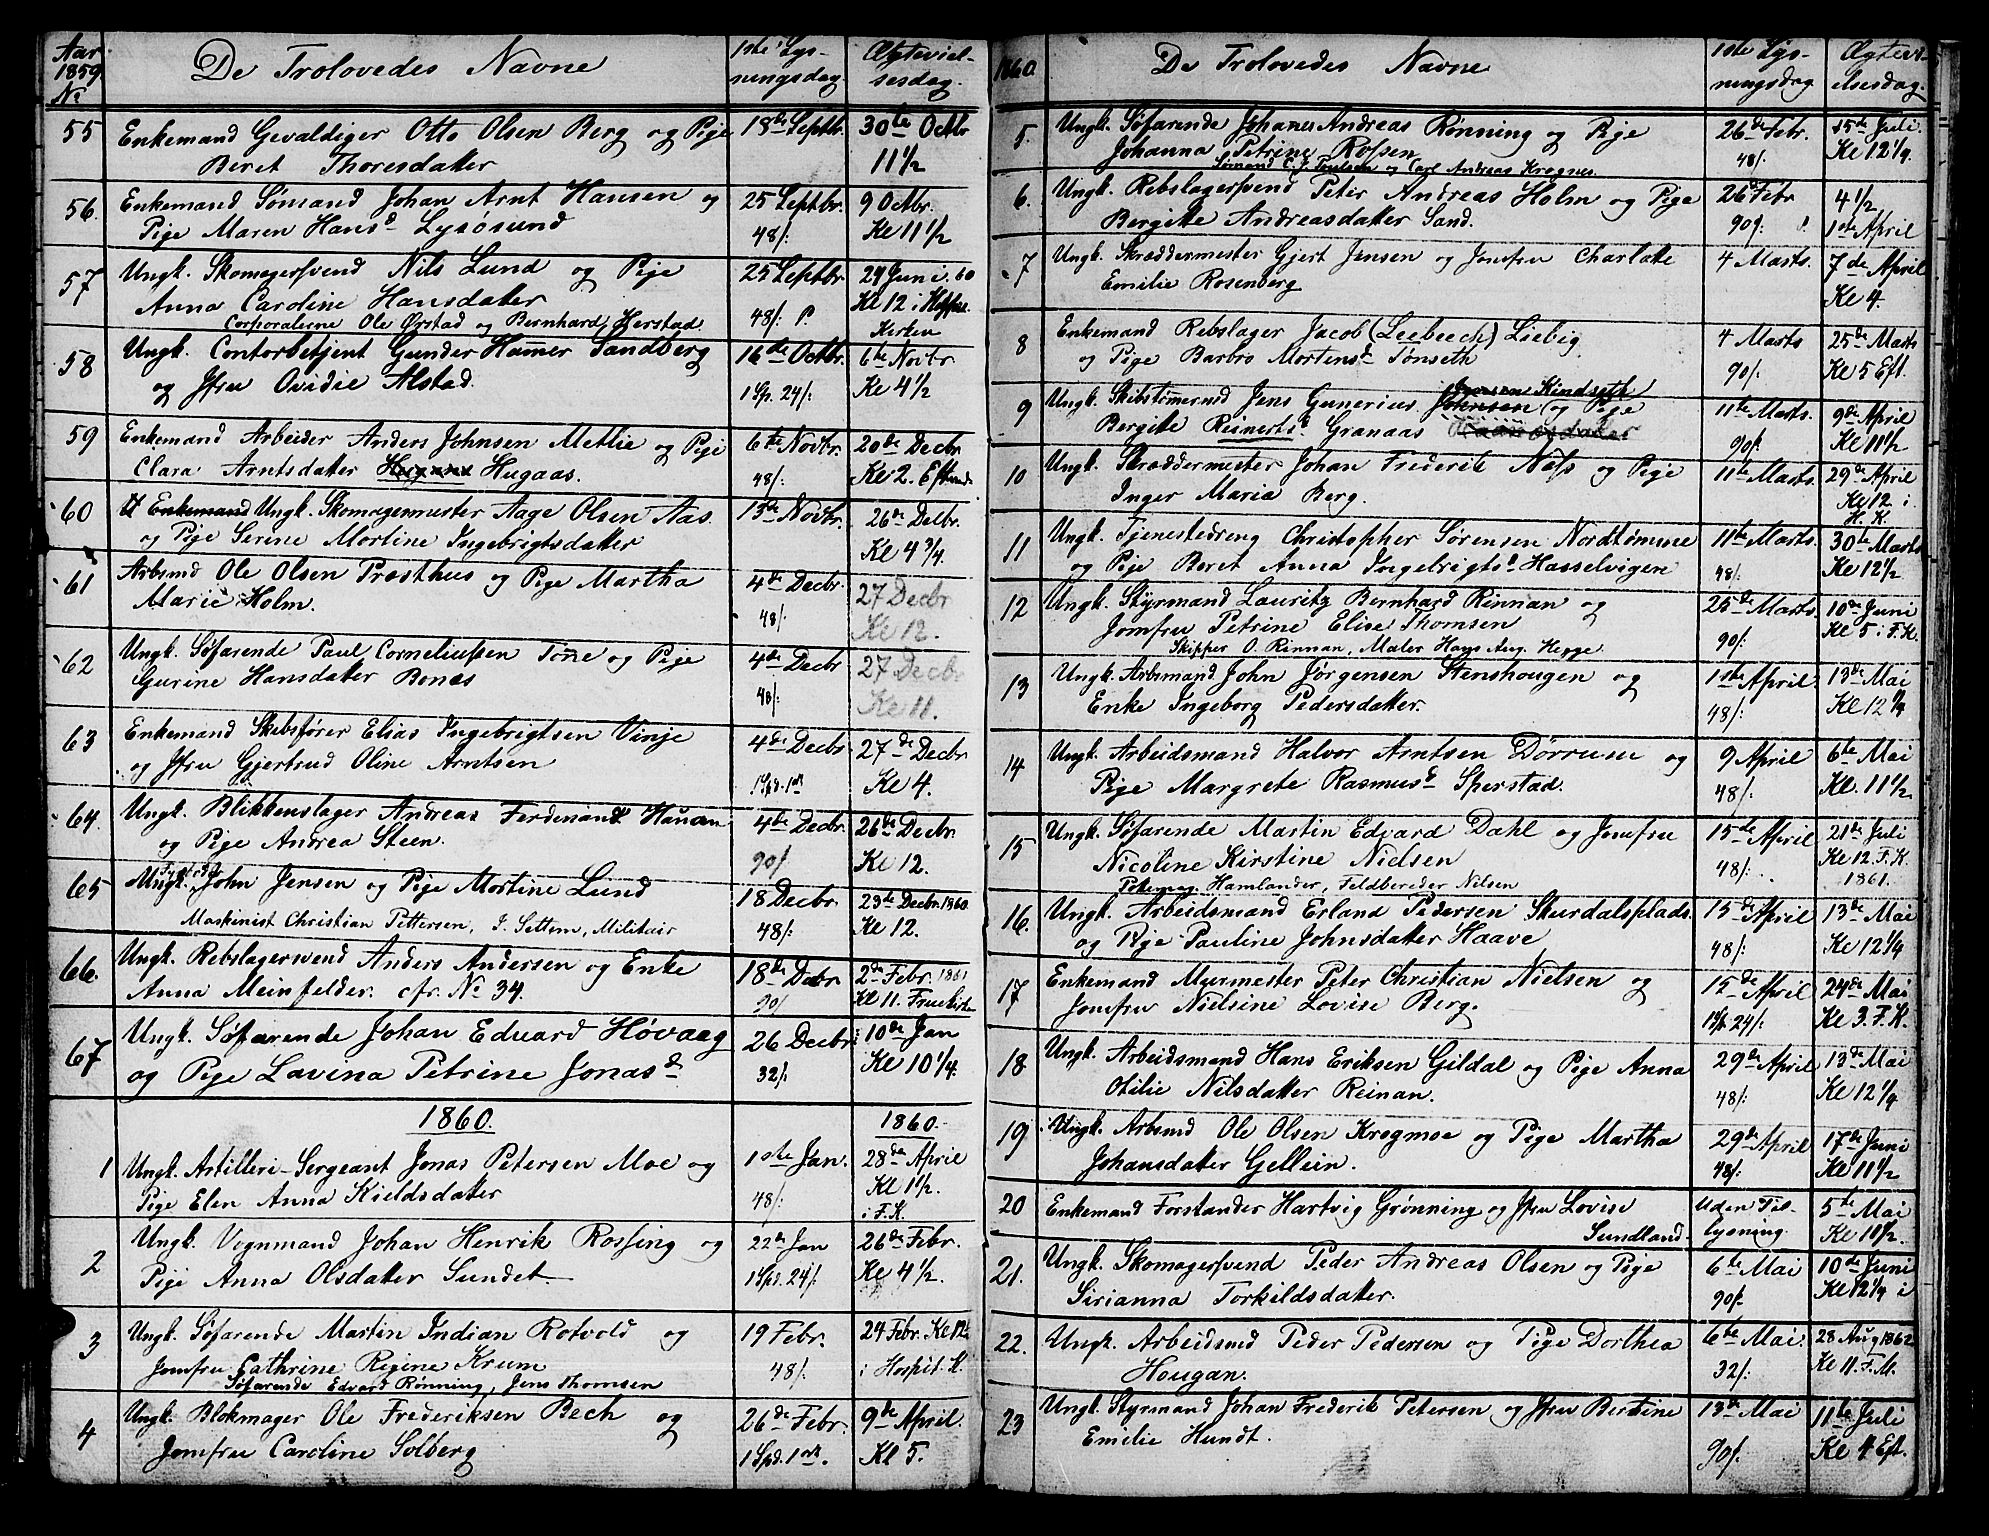 Aar 1859 No
De Trolovedes Navne
1ste Lysningsdag.
Ægtevielsesdag.
55 Enkemand Gevaldiger Otto Olsen Berg og Pige 18de Septbr. 30te Octbr
Beret Thoresdatter 11 1/2
56. Enkemand Sømand Johan Arnt Hansen og 25 Septbr. 9 Octbr.
Pige Maren Hansd. Lysøsund 48/: Kl 11 1/2
57 Ungk. Skomagersvend Nils Lund og Pige 25 Septbr. 24 Juni. 60
Anna Caroline Hansdatter 48/: P. Kl 12 i
Corporalerne Ole Ørstad og Bernhard Herstad. Kirken
58 Ungk. Contorbetjent Gunder Hammer Sandberg 16de Octbr. 6te Novbr.
og Jfru Ovidie Alstad. 1 Sp. 24/: Kl 4 1/2
59 Enkemand Arbeider Anders Johnsen Metlie og Pige 6te Novbr. 20de Decbr.
Clara Arntsdatter Hugaas. 48/: Kl 2. Efterm
60 Enkemand Ungk. Skomagermester Aage Olsen Aas. 13de Novbr. 26de Decbr.
og Pige Serine Mortine Ingebrigtsdatter Kl 4 3/4.
61 Arbsmd Ole Olsen Prosthus og Pige Martha 4de Decbr. 27 Decbr
Marie Holm. 48/: Kl 12.
62 Ungk. Søfarende Paul Corneliussen Tønne og Pige 4de Decbr 27 Decbr
Gurine Hansdatter Bonæs 48/: Kl 11.
63 Enkemand Skibsfører Elias Ingebrigtsen Vinje 4de Decbr. 27de Decbr
og Jfru Gjertrud Oline Arntsen 1 Spd. 1 ort Kl 4.
64. Ungk. Blikkenslager Andreas Ferdinand Hanan 4de Decbr. 26de Decbr
og Pige Andrea Steen. 90/. Kl 12.
65 Ungk. John Jensen og Pige Mortine Lund 18 Decbr. 23de Decbr. 1860.
Maskinist Christian Pettersen, J. Settem, Militair 48/: Kl 12.
66. Ungk. Rebslagersvend Anders Andersen og Enke 18de Decbr 2de Febr. 1861
Anna Meinfelder. cfr. No 34. 90/ Kl 11. Fruekirken
67 Ungk. Søfarende Johan Eduard Høvaag 26 Decbr. 10de Jan
og Pige Lavina Petrine Jonasd. 32/: Kl 10 1/4.
1860. 1860.
1 Ungk. Artilleri-Sergeant Jonas Petersen Moe og 1ste Jan. 28de April
Pige Elen Anna Kieldsdatter 48/: Kl 1 1/2. i F. K.
2 Ungk. Vognmand Johan Henrik Rossing og 22de Jan 26de Febr.
Pige Anna Olsdatter Sundet 1 Spd. 24/: Kl 4 1/2.
3 Ungk. Søfarende Martin Indian Rotvold og 19 Febr. 24 Febr. Kl 12
Jomfru Cathrine Regine Krum 48/: i Hospit. K.
Søfarende Edvard Rønning, Jens Thomsen
4 Ungk. Blokmager Ole Frederiksen Bech og 26de Febr. 9de April.
Jomfru Caroline Solberg 1 Spd. 1 ort. Kl 5.
1860.
De Trolovedes Navne
1ste Lysningsdag.
Ægtevielsesdag.
5. Ungk. Søfarende Johannes Andreas Rønning og Pige 26de Febr. 15de Juli.
Johanna Petrine Rossen 48/. Kl 12 1/4.
Sømand C. J. Poulsen og Carl Andreas Krognes.
6. Ungk. Rebslagersvend Peter Andreas Holm og Pige 26de Febr 4 1/2
Bergitte Andreasdatter Sand. 90/: 1ste April
7 Ungk. Skræddermester Gjert Jensen og Jomfru Charlotte 4 Marts. 7de April
Emilie Rosenberg Kl 4.
8 Enkemand Rebslager Jacob (Leebeech) Liebig 4 Marts 25de Marts
og Pige Barbro Mortensd. Tønseth 90/. Kl 5 Eft.
9 Ungk. Skibstømermd Jens Gunerius Johnsen Jensen Kindseth og Pige 11te Marts. 9de April
Bergitte Reinertsd. Granaas 90/. Kl 11 1/2
10 Ungk. Skræddermester Johan Frederik Næss og Pige 11te Marts. 29de April
Inger Maria Berg. Kl 12 i H. K.
11 Ungk. Tjenestedreng Christopher Sørensen Nordtømme 11te Marts. 30te Marts
og Pige Beret Anna Ingebrigtsd. Hasselvigen 48/: Kl 12 1/2
12 Ungk. Styrmand Lauritz Bernhard Rinnan og 25de Marts. 10de Juni
Jomfru Petrine Elise Thomsen 90/: Kl 5 i F. K.
Skipper O. Rinnan, Maler Hans Aug. Hegge.
13 Ungk. Arbsmand John Jørgensen Stenshougen og 1ste April. 13de Mai
Enke Ingeborg Pedersdatter. 48/: Kl 12 1/4
14 Ungk. Arbeidsmand Halvor Arntsen Dørrum og 9 April 6te Mai
Pige Margrete Rasmusd. Sperstad. 48/: Kl. 11 1/2.
15 Ungk. Søfarende Martin Edvard Dahl og Jomfru 15de April 21de Juli
Nicoline Kirstine Nielsen 48/: Kl 12. F. K.
Potemag. Hamlander, Feldbereder Nilsen 1861.
16. Ungk. Arbeidsmand Erland Pedersen Skurdalsplads. 15de April 13de Mai
og Pige Pauline Johnsdatter Haave 48/: Kl 12 1/4
17 Enkemand Murmester Peter Christian Nielsen og 15de April 24de Mai
Jomfru Nielsine Lovise Berg. 24/: Kl 3. F. K.
18 Ungk. Arbeidsmand Hans Eriksen Gildal og Pige Anna 29de April 13de Mai
Otilie Nilsdatter Reinan. 48/: Kl 12 1/4
19 Ungk. Arbsmd Ole Olsen Krogmoe og Pige Martha 29de April 17de Juni
Johansdatter Gellein. 48/: Kl 11 1/2
20 Enkemand Forstander Hartvig Grønning og Jfru Lovise Uden Til- 5te Mai
Sundland. lysning. Kl 11 1/2.
21. Ungk. Skomagersvend Peder Andreas Olsen og Pige 6te Mai 10de Juni
Sirianna Torkildsdatter. 90/. Kl 12 1/4 i
22. Ungk. Arbeidsmd Peder Pedersen og Pige Dorthea 6te Mai. 28 Aug 1862
Hougan. 32/: Kl 11. F. K.
23 Ungk. Styrmand Johan Frederik Petersen og Jfru Bertine 13de Mai 11te Juli
Emilie Hundt. 90/. Kl 4 Eft.